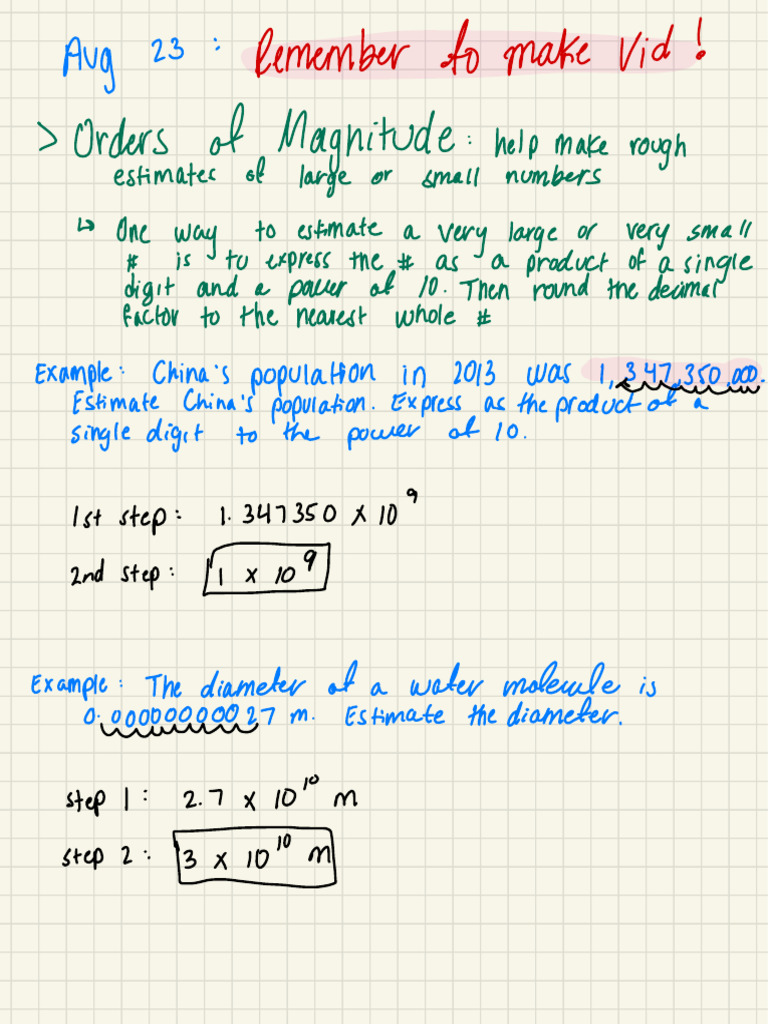 Aug 23 : Remember to make Vid!
> Orders of Magnitude: help make rough
estimates of large or small numbers
↳ One way to estimate a very large or very small
# is to express the # as a product of a single
digit and a power of 10. Then round the decimal
factor to the nearest whole #
Example: China's population in 2013 was 1,347,350,000.
Estimate China's population. Express as the product of a
single digit to the power of 10.
1st step: 1.347350 x 10⁹
2nd step: 1 x 10⁹
Example: The diameter of a water molecule is
0.00000000027 m. Estimate the diameter.
step 1: 2.7 x 10¹⁰ m
step 2: 3 x 10¹⁰ m